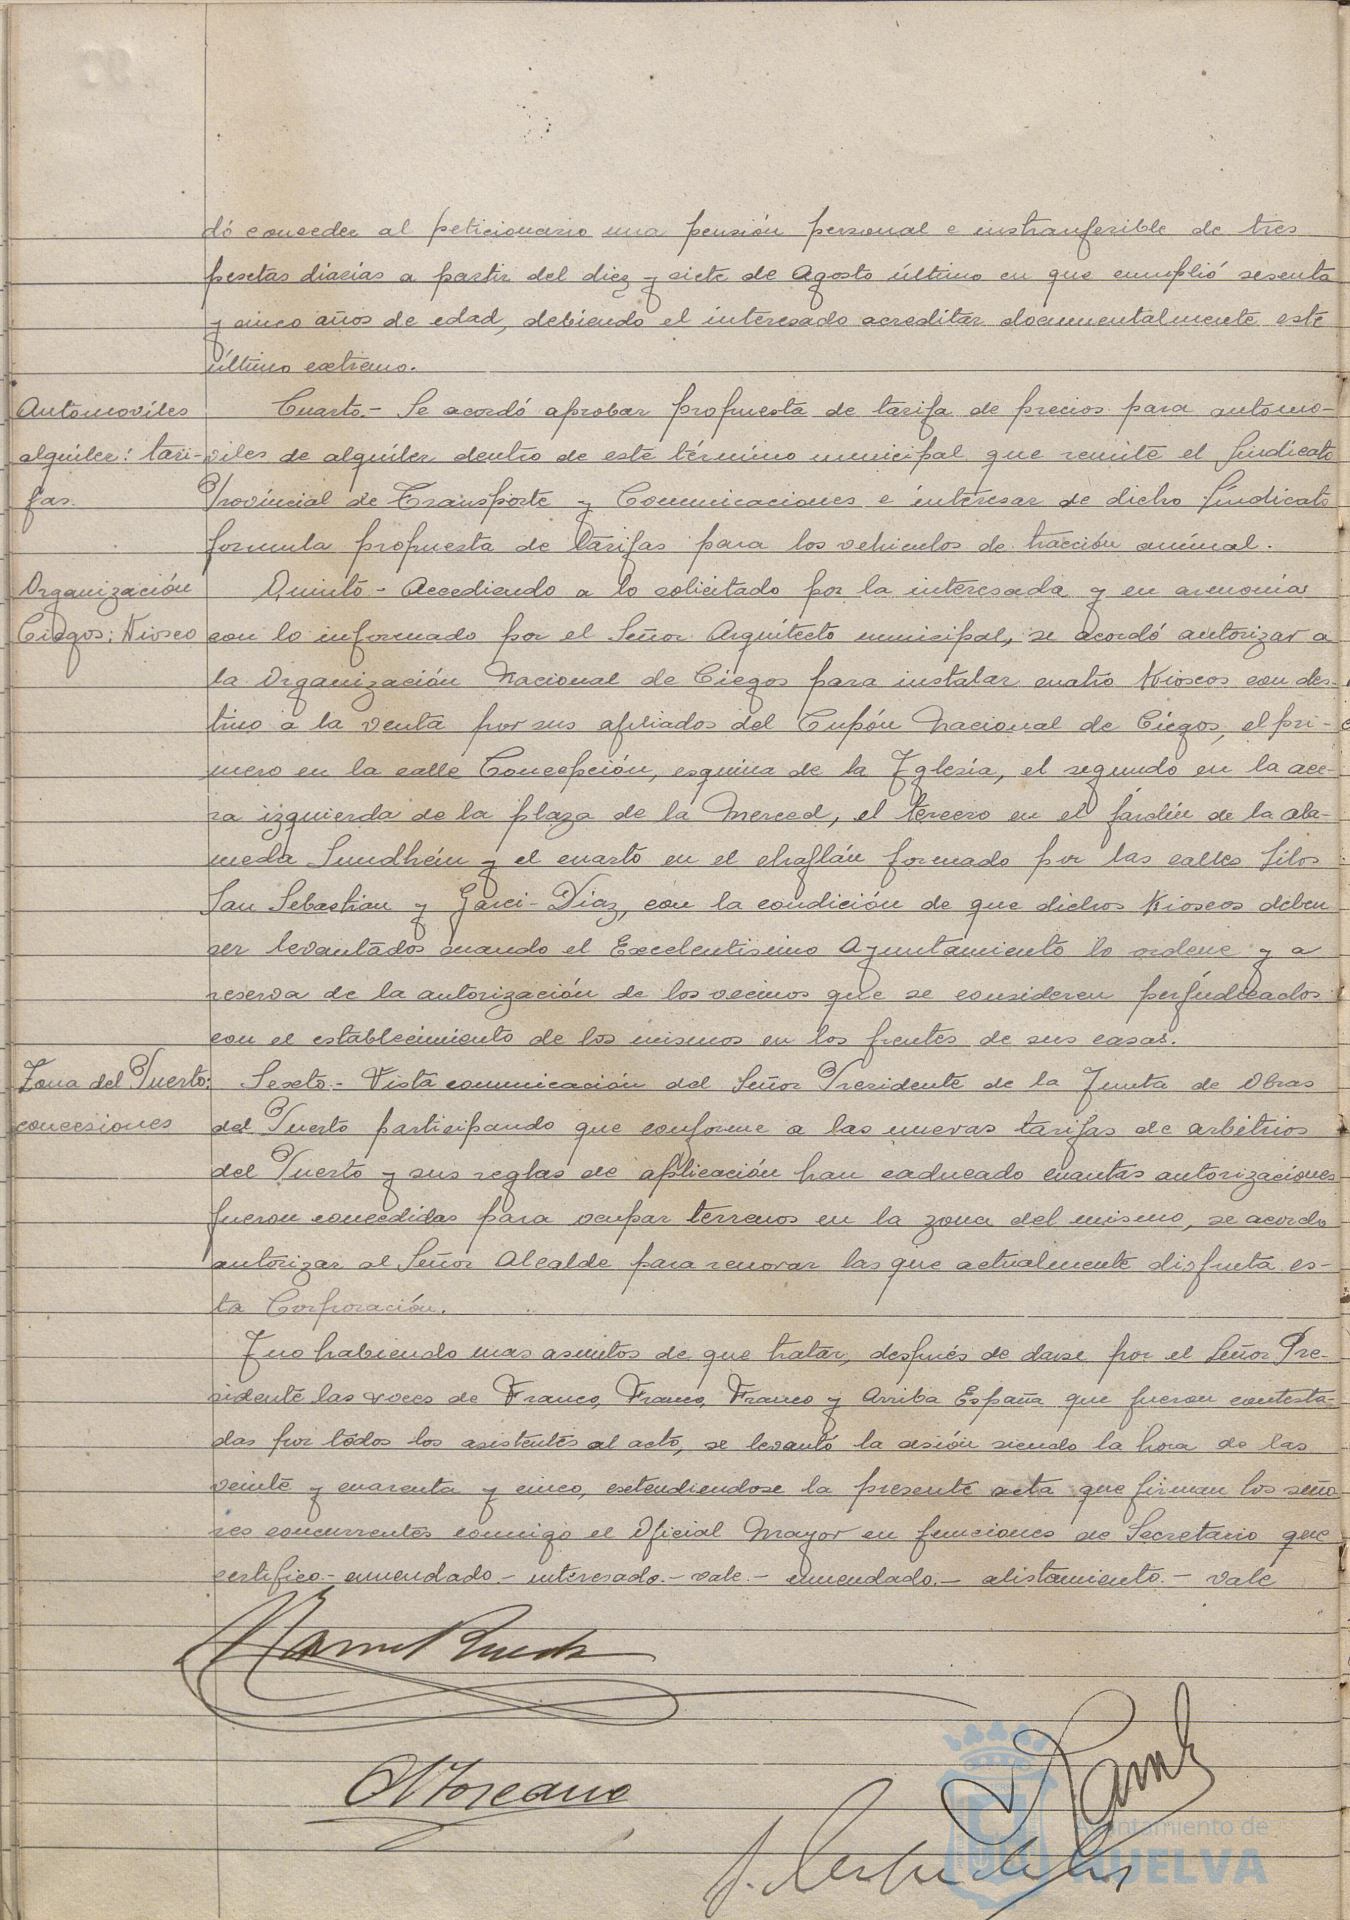 dó conceder al peticionario una pensión personal e instranferible de tres
pesetas diarias a partir del diez y siete de Agosto último en que cumplió sesenta
y cinco años de edad, debiendo el interesado acreditar documentalmente este
último extremo.
Automoviles
alquiler: tari-
fas.
Cuarto.- Se acordó aprobar propuesta de tarifa de precios para automo-
viles de alquiler dentro de este término municipal que remite el Sindicato
Provincial de Transporte y Comunicaciones e interesar de dicho Sindicato
formula propuesta de tarifas para los vehiculos de tracción animal.
Organización
Ciegos: Kiosco
Quinto - Accediendo a lo solicitado por la interesada y en armonía
con lo informado por el Señor Arquitecto municipal, se acordó autorizar a
la Organización Nacional de Ciegos para instalar cuatro Kioscos con des-
tino a la venta por sus afiliados del Cupón Nacional de Ciegos, el pri-
mero en la calle Concepción, esquina de la Iglesia, el segundo en la ace-
ra izquierda de la plaza de la Merced, el tercero en el jardín de la ala-
meda Sundheim y el cuarto en el chaflán formado por las calles Silos
San Sebastian y Garci-Diaz, con la condición de que dichos Kioscos deben
ser levantados cuando el Excelentisimo Ayuntamiento lo ordene y a
reserva de la autorización de los vecinos que se consideren perjudicados
con el establecimiento de los mismos en los frentes de sus casas.
Zona del Puerto:
concesiones
Sexto.- Vista comunicación del Señor Presidente de la Junta de Obras
del Puerto participando que conforme a las nuevas tarifas de arbitrios
del Puerto y sus reglas de aplicación han caducado cuantas autorizaciones
fueron concedidas para ocupar terrenos en la zona del mismo, se acordo
autorizar al Señor Alcalde para renovar las que actualmente disfruta es-
ta Corporación.
Y no habiendo mas asuntos de que tratar, después de darse por el Señor Pre-
sidente las voces de Franco, Franco, Franco y Arriba España que fueron contesta-
das por todos los asistentes al acto, se levantó la sesión siendo la hora de las
veinte y cuarenta y cinco, extendiendose la presente acta que firman los seño
res concurrentes conmigo el Oficial Mayor en funciones de Secretario que
certifico.- enmendado.- interesado.- vale.- enmendado.- alistamiento.- vale
Ayuntamiento de
HUELVA